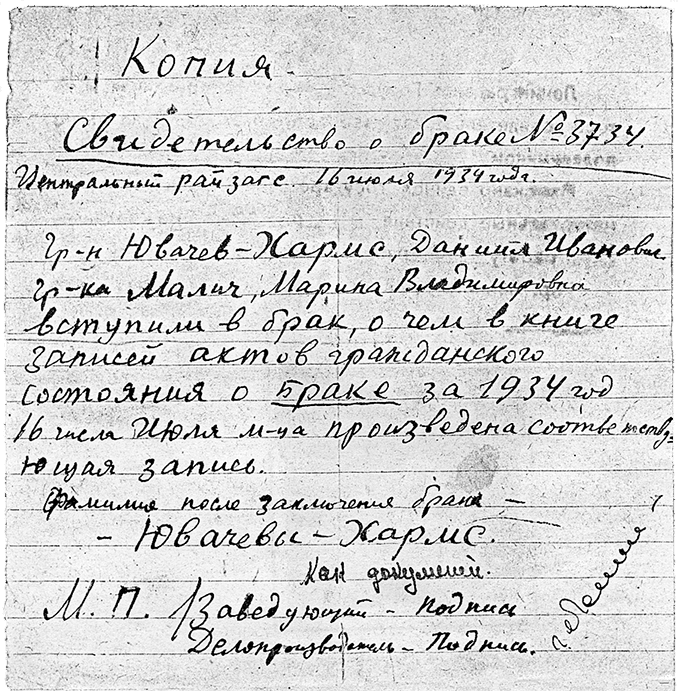 Копия.
Свидетельство о браке № 3734.
Центральный райзагс. 16 июля 1934 года.
Гр-н Ювачев-Хармс, Даниил Иванович
Гр-ка Малич, Марина Владимировна
вступили в брак, о чем в книге
записей актов гражданского
состояния о браке за 1934 год
16 числа Июля м-ца произведена соответству-
ющая запись.
Фамилия после заключения брака —
- Ювачевы - Хармс.
М. П. Заведующий - Подпись
Делопроизводитель - Подпись.